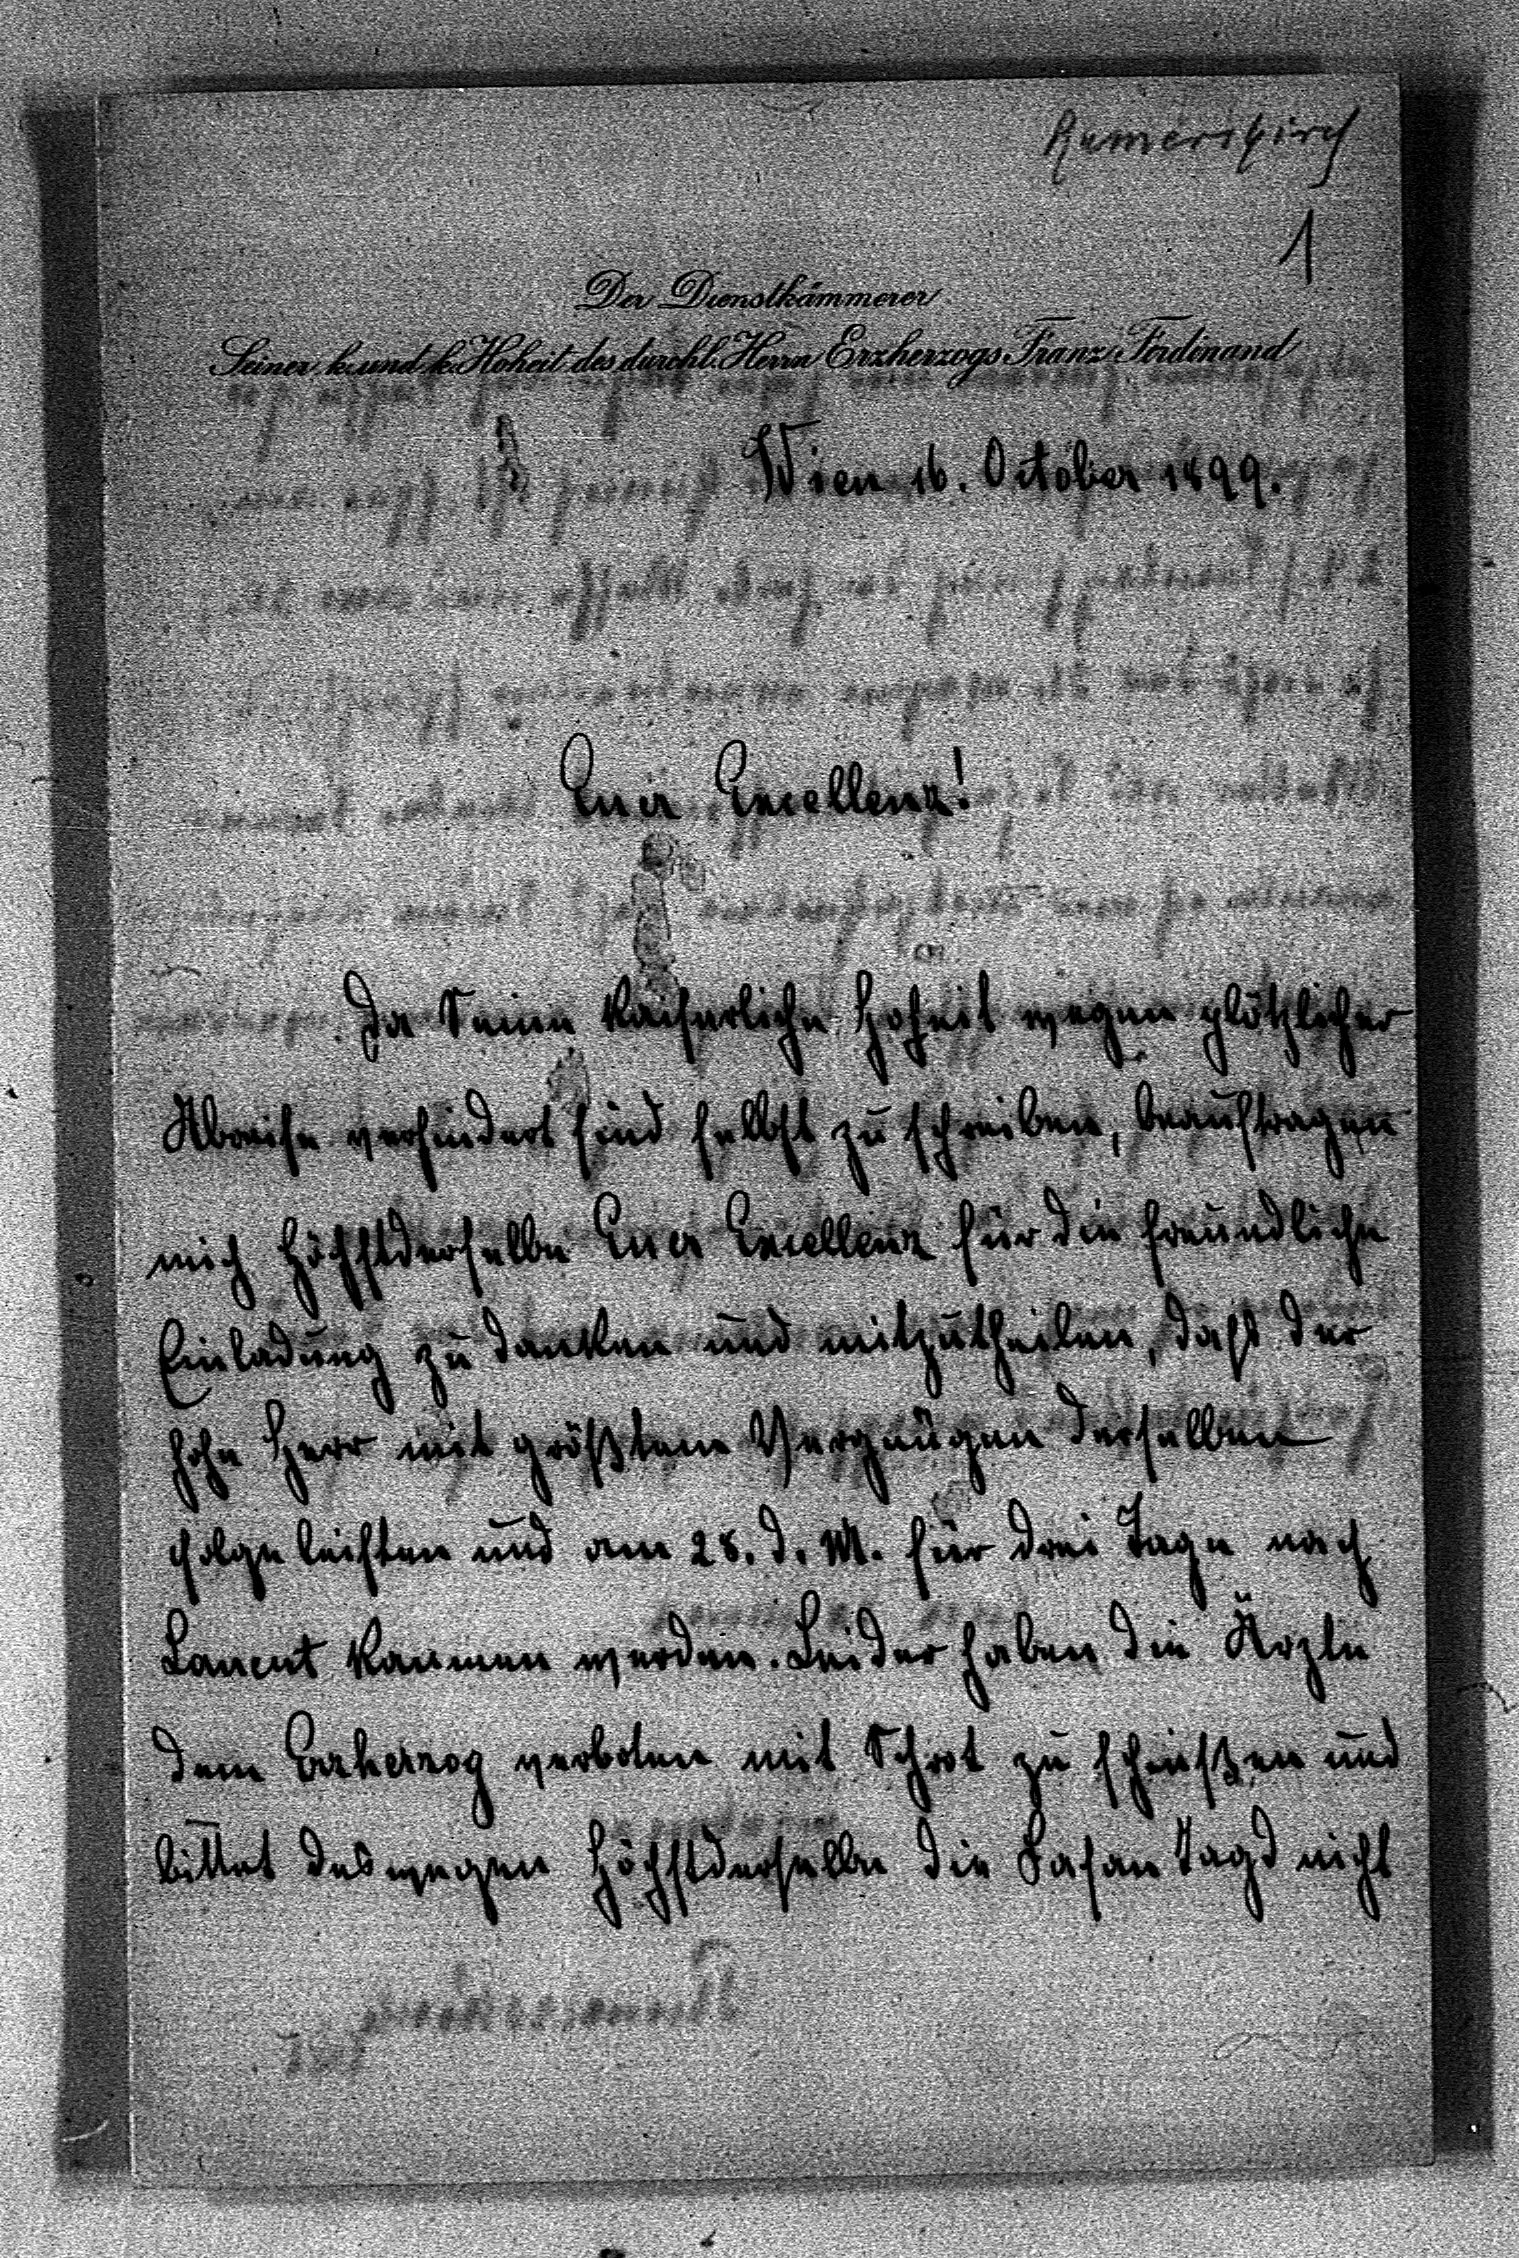 Rumerskirch
1
Der Dienstkämmerer
Seiner k. und k. Hoheit des durchl. Herrn Erzherzogs Franz Ferdinand
Wien 16. October 1899.
Euer Excellenz!
Da Seine Kaiserliche Hoheit wegen plötzlicher
Abreise verhindert sind selbst zu schreiben, beauftragen
mich Höchstderselbe Euer Excellenz für die freundliche
Einladung zu danken und mitzutheilen, daß der
hohe Herr mit größtem Vergnügen derselben
folge leisten und am 28. d. M. für drei Tage nach
Lancut kommen werden. Leider haben die Ärzte
dem Erzherzog verboten mit Schrot zu schießen und
bittet deswegen Höchstderselbe die Fasan Jagd nicht